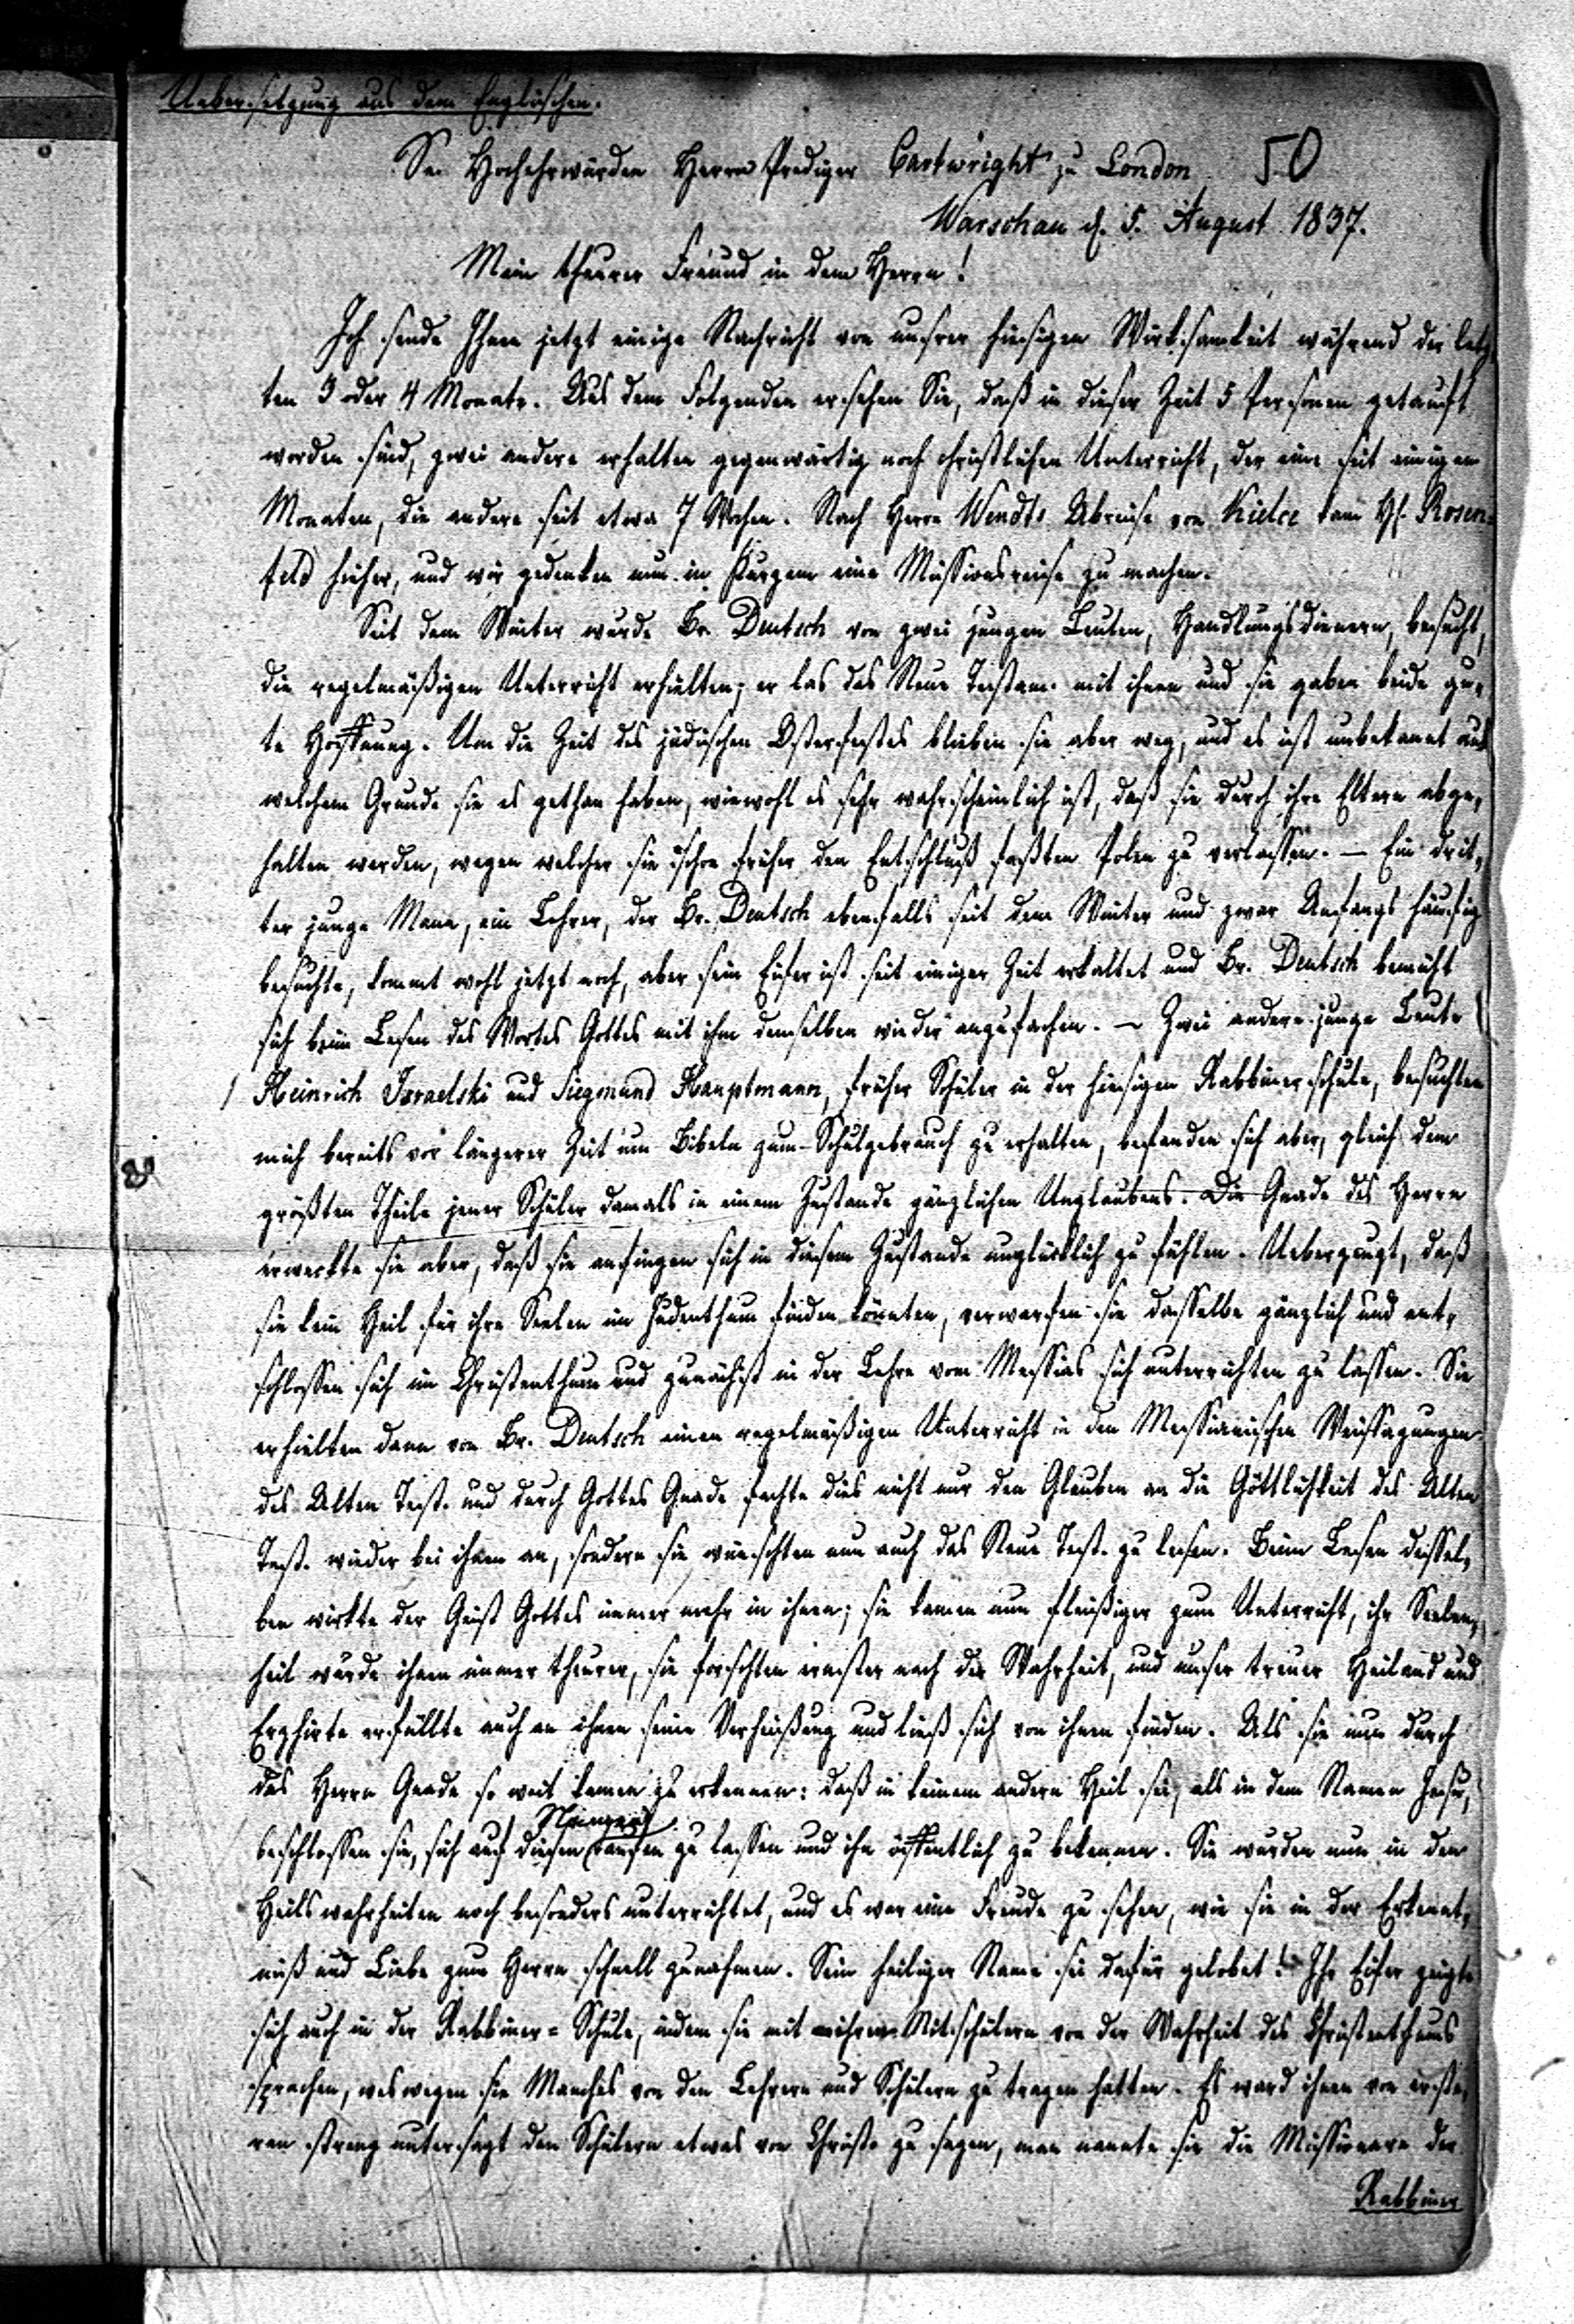 Uebersetzung aus dem Englischen.
Sr. Hochehrwürden Herrn Prediger Cartwright zu London 50
Warschau d. 5. August 1837.
Mein theurer Freund in dem Herrn!
Ich sende Ihnen jetzt einige Nachricht von unsrer hiesigen Wirksamkeit während der letz-
ten 3 oder 4 Monate. Aus dem Folgenden ersehen Sie, daß in dieser Zeit 5 Personen getauft
worden sind, zwei andere erhalten gegenwärtig noch christlichen Unterricht, der eine seit einigen
Monaten, die andere seit etwa 7 Wochen. Nach Herrn Wendts Abreise von Kielce kam H. Rosen-
feld hieher, und wir gedenken nun in Kurzem eine Missionsreise zu machen.
Seit dem Winter wurde Br. Deutsch von zwei jungen Leuten, Handlungsdienern, besucht,
die regelmäßigen Unterricht erhielten; er las das Neue Testam. mit ihnen und sie gaben beide gu-
te Hoffnung. Um die Zeit des jüdischen Osterfestes blieben sie aber weg, und es ist unbekannt aus
welchem Grunde sie es gethan haben, wiewohl es sehr wahrscheinlich ist, daß sie durch ihre Eltern abge-
halten werden, wegen welcher sie schon früher den Entschluß faßten Polen zu verlassen. — Ein drit-
ter junge Mann, ein Lehrer, der Br. Deutsch ebenfalls seit dem Winter und zwar Anfangs häufig
besuchte, kommt wohl jetzt noch, aber sein Eifer ist seit einiger Zeit erkaltet und Br. Deutsch bemüht
sich beim Lesen des Wortes Gottes mit ihm denselben wieder anzufachen. — Zwei andere junge Leute
Heinrich Israelski und Siegmund Hauptmann, früher Schüler in der hiesigen Rabbinerschule, besuchten
mich bereits vor längerer Zeit um Bibeln zum Schulgebrauch zu erhalten, befanden sich aber, gleich dem
größten Theile jener Schüler damals in einem Zustande gänzlichen Unglaubens. Die Gnade des Herrn
erweckte sie aber, daß sie anfingen sich in diesem Zustande unglücklich zu fühlen. Ueberzeugt, daß
sie kein Heil für ihre Seelen im Judenthum finden könnten, verwarfen sie dasselbe gänzlich und ent-
schlossen sich im Christenthum und zunächst in der Lehre vom Messias sich unterrichten zu lassen. Sie
erhielten dann von Br. Deutsch einen regelmäßigen Unterricht in den Messianischen Weissagungen
des Alten Test. und durch Gottes Gnade fachte dies nicht nur den Glauben an die Göttlichkeit des Alten
Test. wieder bei ihnen an, sondern sie wünschten nun auch das Neue Test. zu lesen. Beim Lesen dessel-
ben wirkte der Geist Gottes immer mehr in ihnen; sie kamen nun fleißiger zum Unterricht, ihr Seelen-
heil wurde ihnen immer theurer, sie forschten ernster nach der Wahrheit, und unser treuer Heiland und
Erzhirte erfüllte auch an ihnen seine Verheißung und ließ sich von ihnen finden. Als sie nun durch
des Herrn Gnade so weit kamen zu erkennen: daß in keinem andern Heil sei, als in dem Namen Jesu,
beschlossen sie, sich auf diesen Namen taufen zu lassen und ihn öffentlich zu bekennen. Sie wurden nun in den
Heilswahrheiten noch besonders unterrichtet, und es war eine Freude zu sehen, wie sie in der Erkennt-
niß und Liebe zum Herrn schnell zunahmen. Sein heiliger Name sei dafür gelobet! Ihr Eifer zeigte
sich auch in der Rabbiner-Schule, indem sie mit ihren Mitschülern von der Wahrheit des Christenthums
sprachen, weswegen sie Manches von den Lehrern und Schülern zu tragen hatten. Es ward ihnen von erste-
ren streng untersagt den Schülern etwas von Christo zu sagen, man nannte sie die Missionare der
Rabbiner